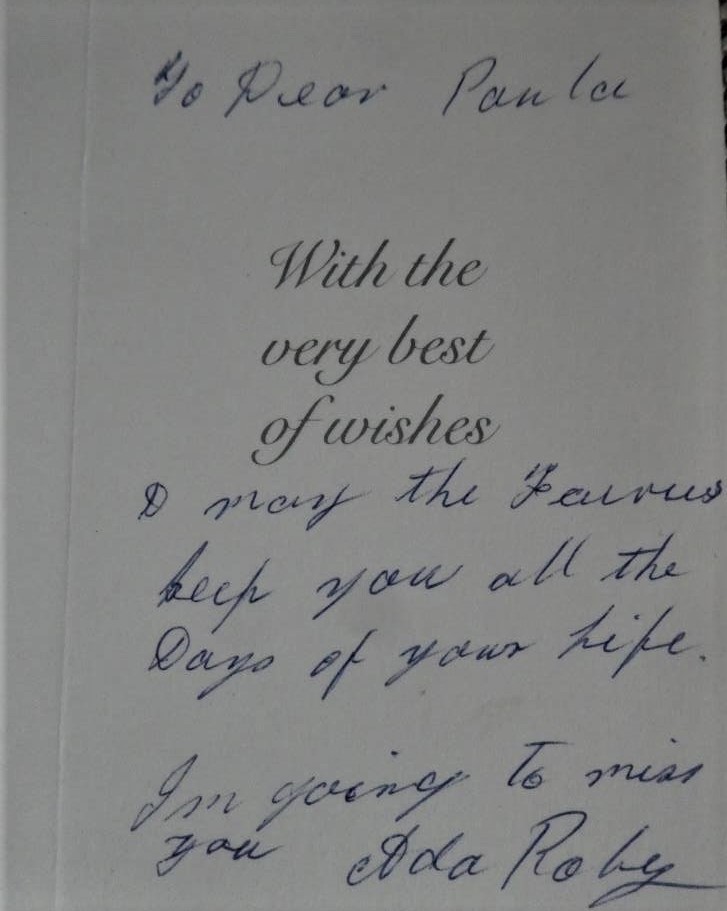 To Dear Paula
With the
very best
of wishes
& may the
keep you all the
Days of your Life.
Im going to miss
you Ada Roby